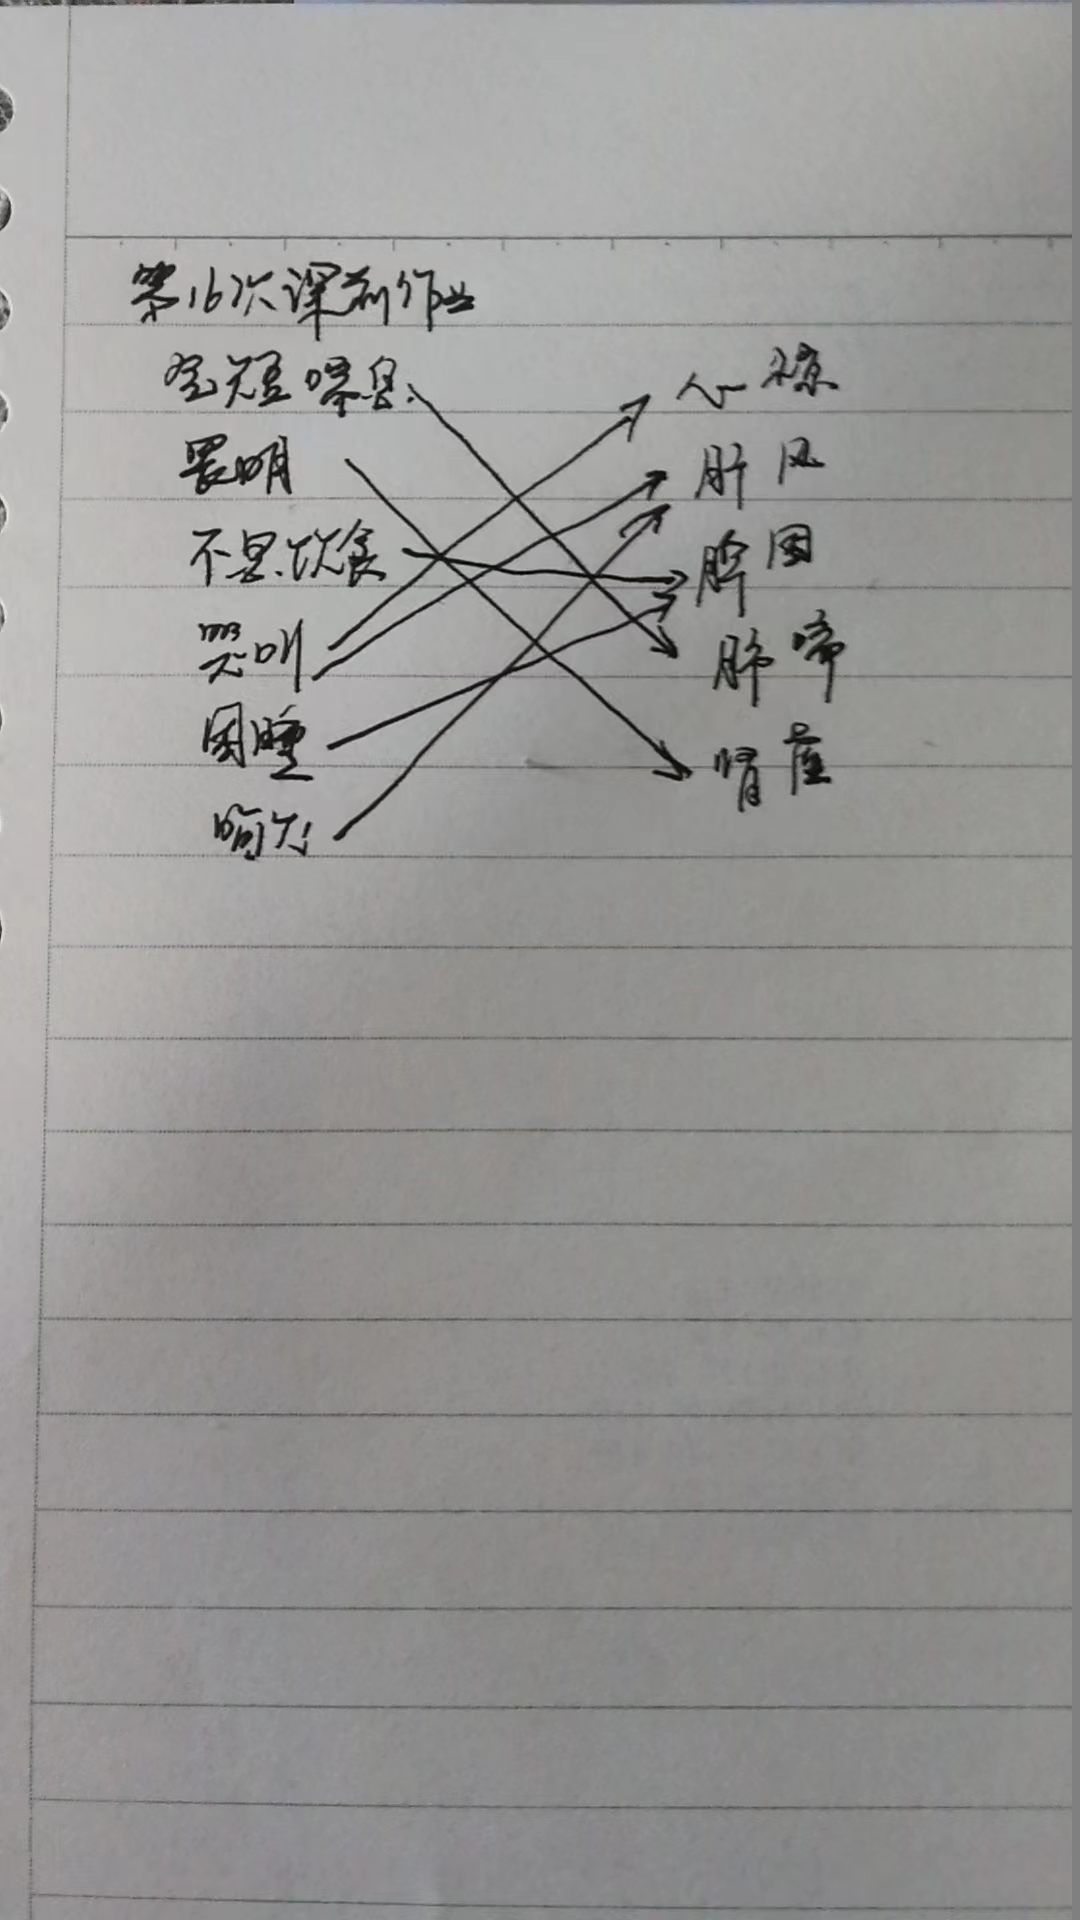 第16次课前作业
气短喘息 心惊
畏明 肝风
不思饮食 脾困
哭叫 肺喘
困睡 肾虚
呵欠